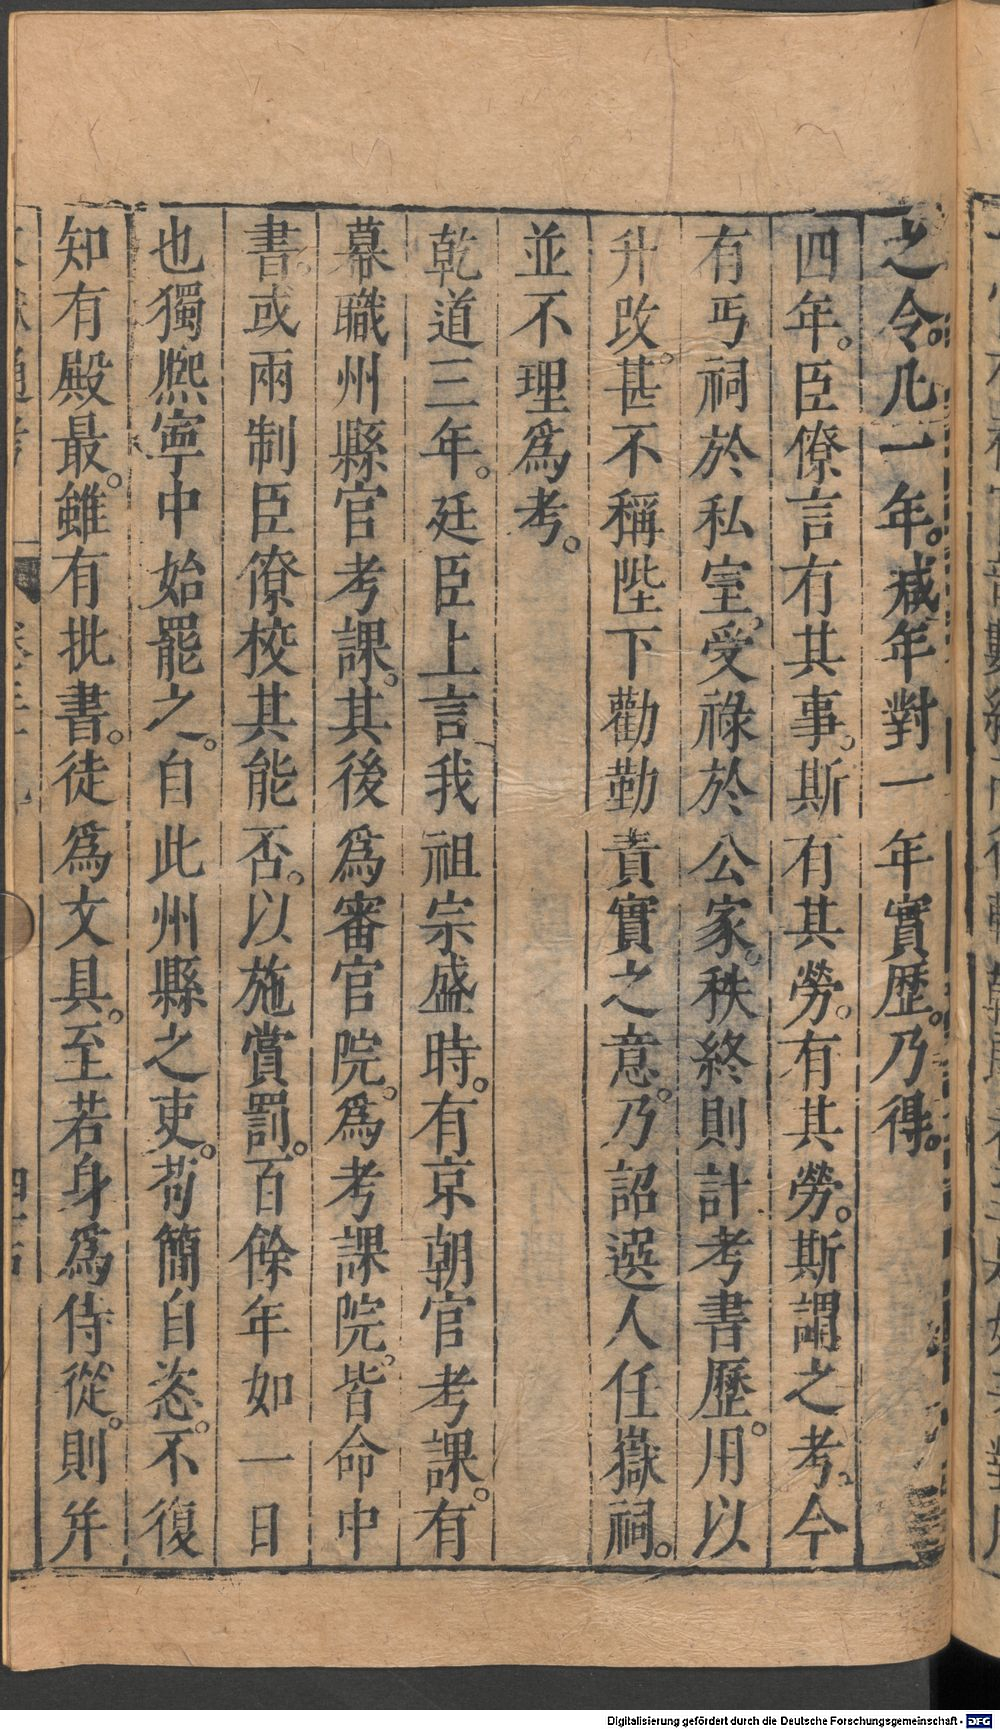 之令。凡一年。减年對一年實歷。乃得。
四年。臣僚言有其事。斯有其勞。有其勞。斯謂之考。今
有丐祠於私室。受祿於公家。秩終則計考書歷。用以
升改。甚不稱陛下勸勤責實之意。乃詔選人任嶽祠。
並不理爲考。
乾道三年。廷臣上言、我祖宗盛時。有京朝官考課。有
幕職州縣官考課。其後爲審官院。爲考課院。皆命中
書。或兩制臣僚校其能否。以施賞罰。百餘年如一日
也獨熈寧中始罷之。自此州縣之吏。苟簡自恣。不復
知有殿最。雖有批書。徒爲文具。至若身爲侍從。則并
通考
Digitalisierung gefördert durch die Deutsche Forschungsgemeinschaft - DFG